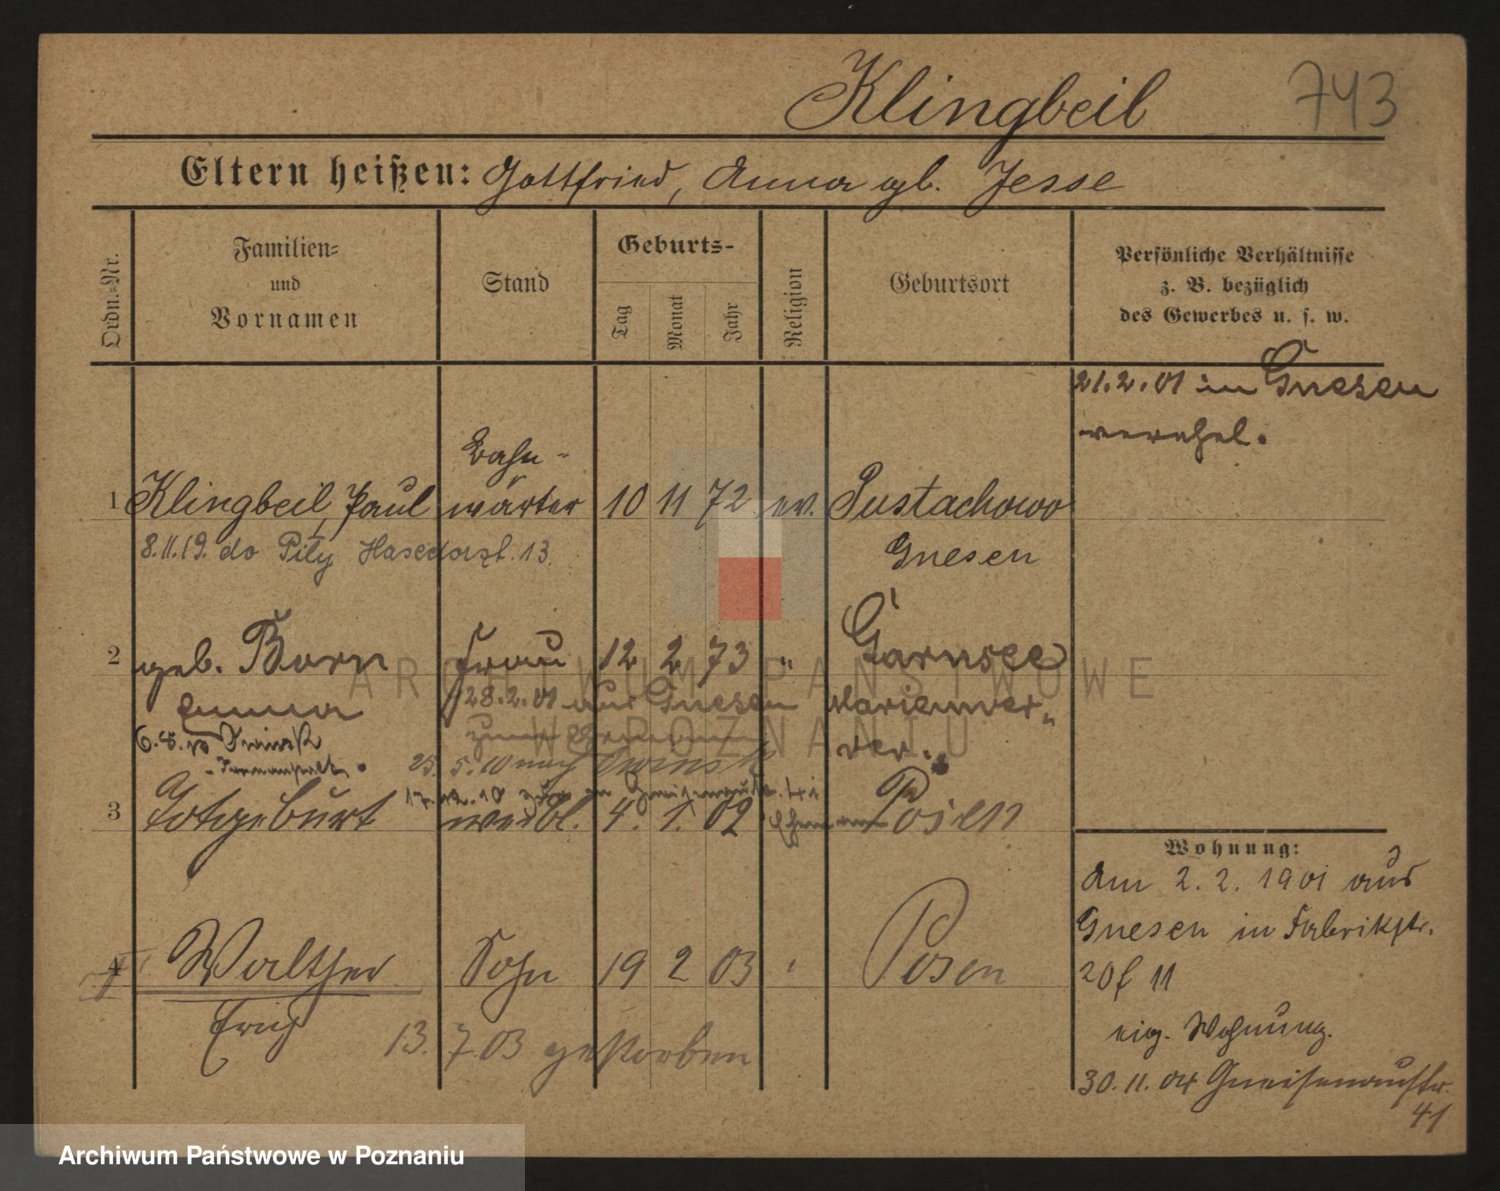 Klingbeil 743
Eltern heißen: Gottfried, Anna gb. Jesse
Ordn.-Nr.
Familien- und Vornamen
Stand
Geburts-
Tag Monat Jahr
Religion
Geburtsort
Persönliche Verhältnisse
z. B. bezüglich
des Gewerbes u. s. w.
21.2.01 in Gnesen
verehel.
Bahn-
1 Klingbeil, Paul wärter 10 11 72 ev. Pustachowo
8.11.19. do Piły 13. Gnesen
2 geb. Born Frau 12 2 73 " Garnsee
Emma 28.2.01 aus Gnesen Marienwer-
der.
6.8.10
25.5.10 nach
17.12.10
3 Totgeburt weibl. 4. 1. 02 Posen
4 Walther Sohn 19 2 03 Posen
Erich 13. 7. 03 gestorben
Wohnung:
Am 2. 2. 1901 aus
Gnesen in Fabrikstr.
20f 11
eig. Wohnung.
30.11.04 Gneisenaustr.
41
ARCHIWUM PAŃSTWOWE
W POZNANIU
Archiwum Państwowe w Poznaniu